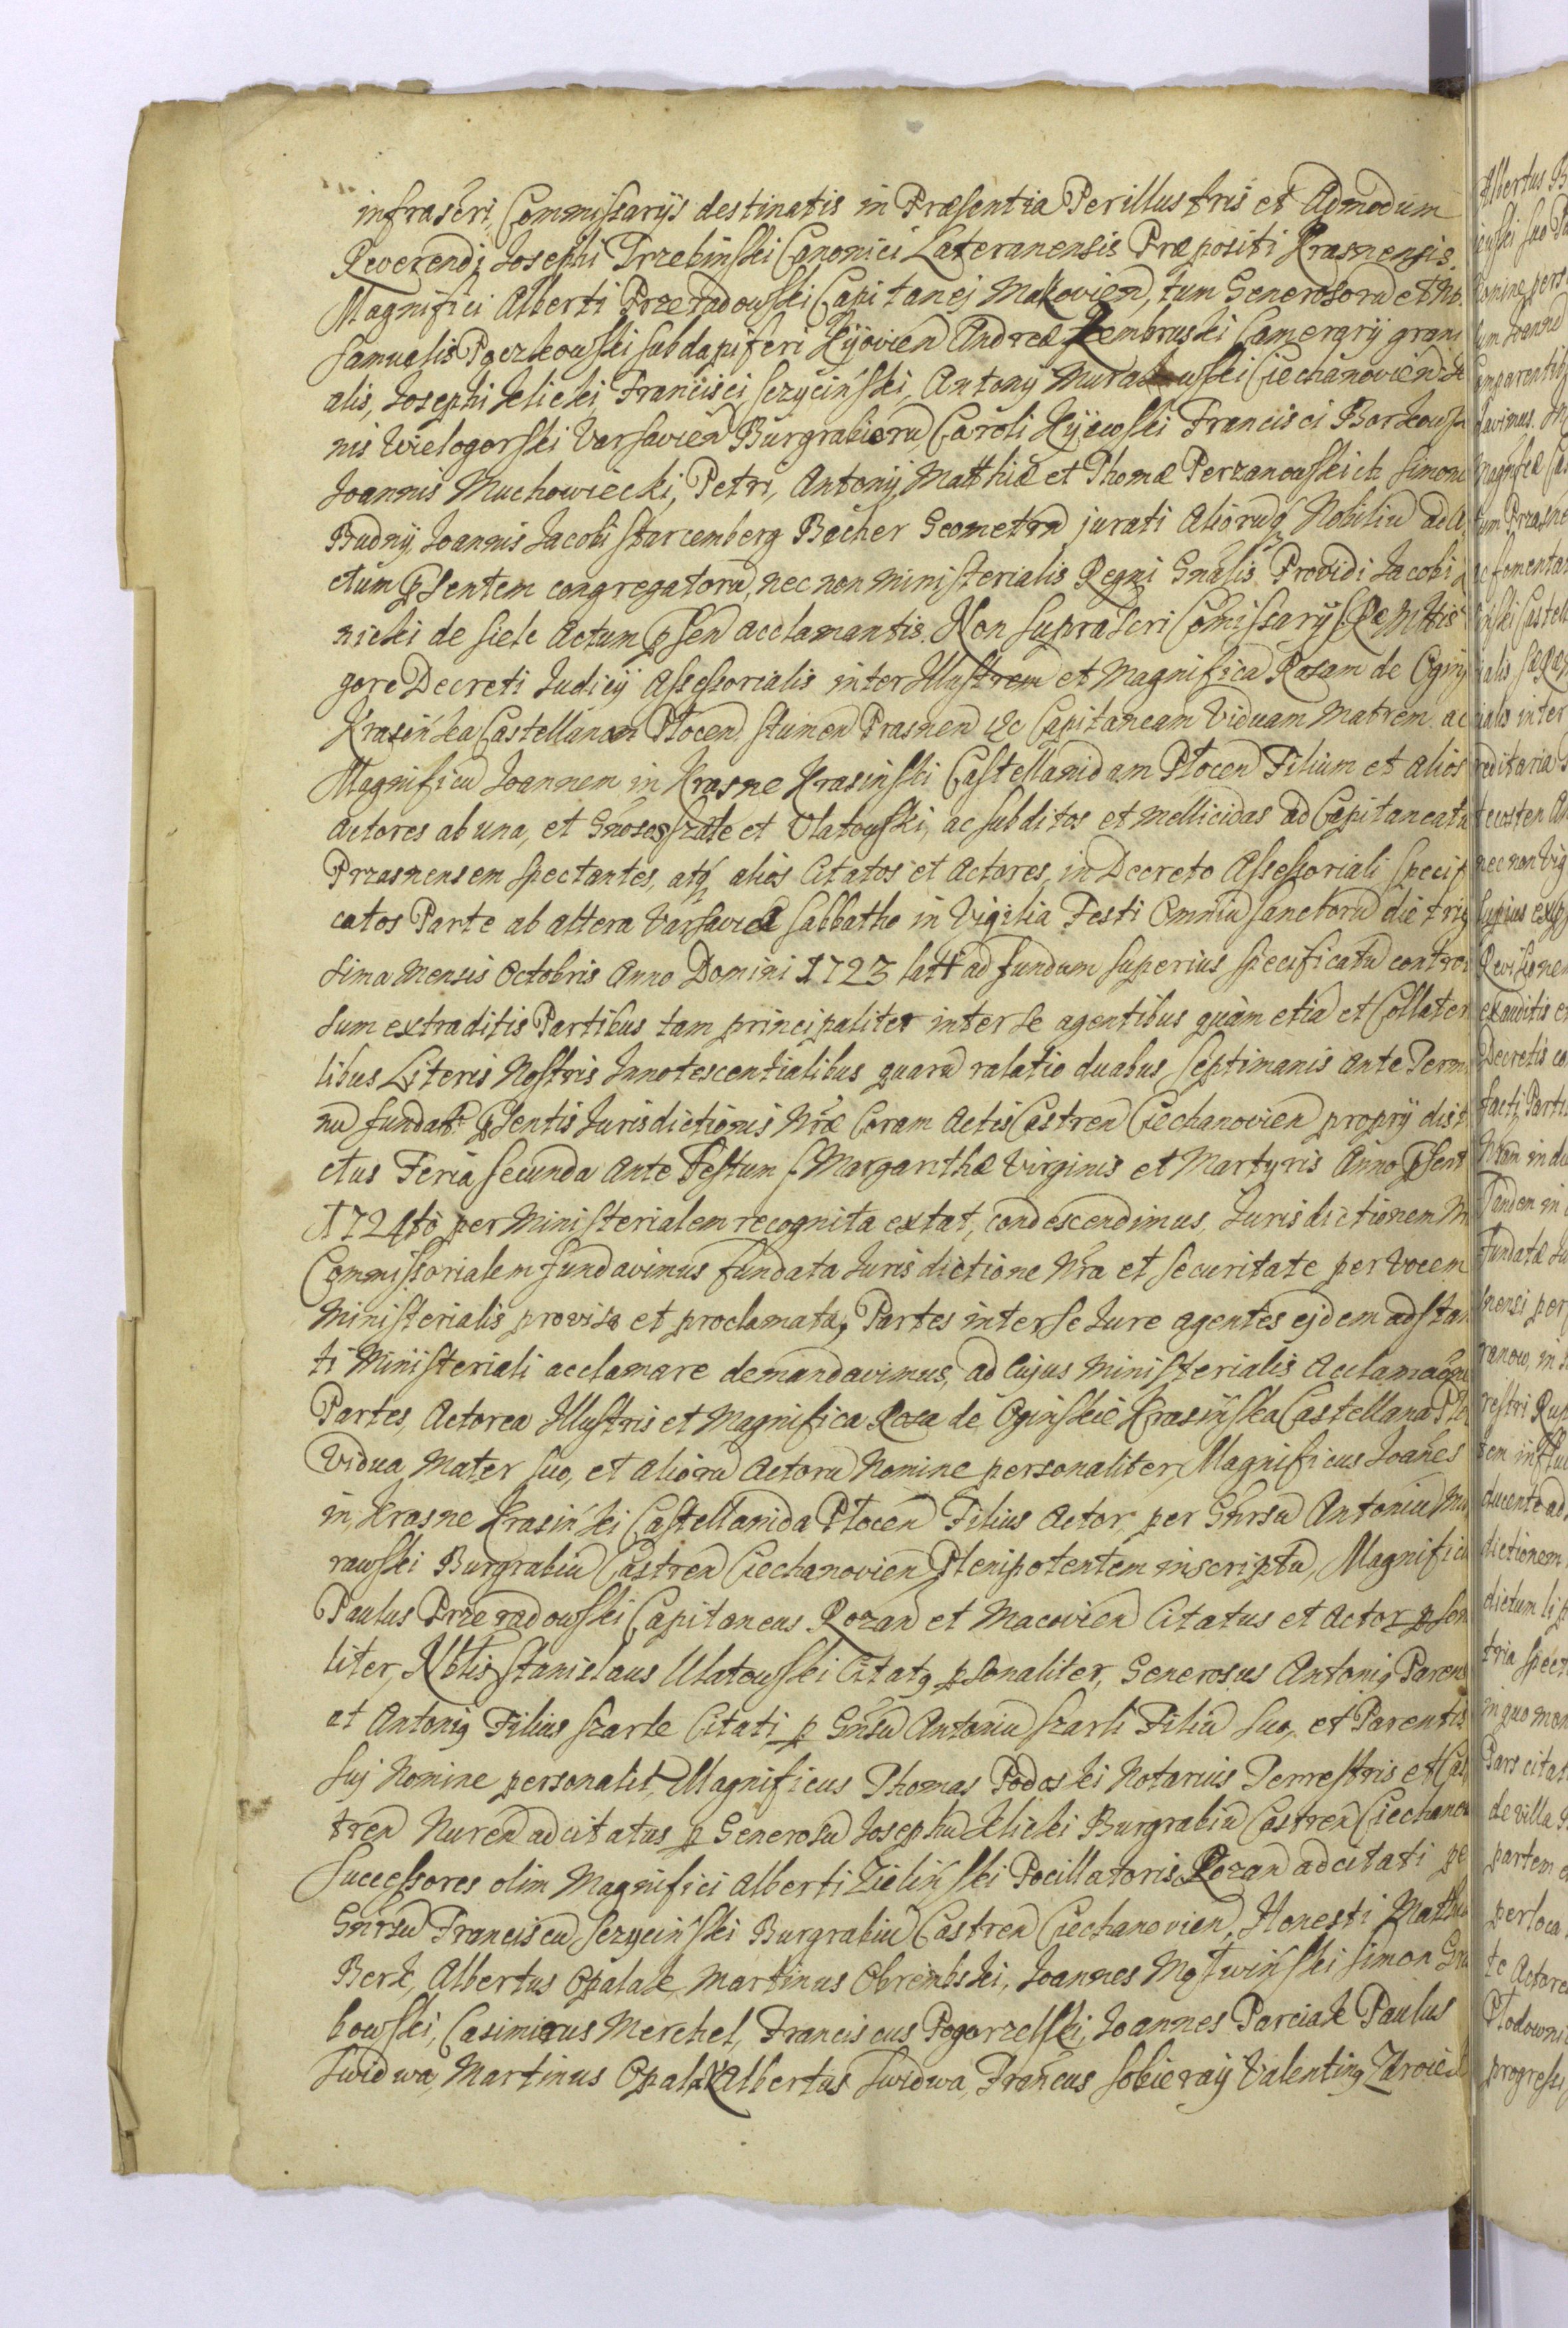 infrascri Commissarijs destinatis in Præsentia Perillustris et Admodum
Reverendi Josephi Trzebinski Canonici Lateranensis Præpositi Krasnensis
Magnifici Alberti Przeradowski Capitanej Makovien, tum Generosoru et No
Samuelis Pączkowski subdapiferi Kijovien Andreæ Zembruski Camerarij gran
alis, Josephi Klicki, Francisci Szyciński, Antonij Murawski Ciechanovien
nis Wielogorski Varsavien Burgrabioru, Caroli Kijewski Francisci Borkows
Joannis Muchowiecki, Petri, Antonij Matthiæ et Thomæ Perzanowskich Simon
Budny, Joannis Jacobi Starcemberg Becher Geometra jurati Alioruq Nobiliu ad A
ctum psentem congregatoru, nec non Ministerialis Regni Gnalis Providi Jacobi
nicki de Siele Actum psen acclamantis. Non suprascri Comissarij
gore Decreti Judicij Assessorialis inter Illustrem et Magnifica Rosam de Oginij
Krasińska Castellanam Płocen Prasnen &c Capitaneam Viduam Matrem ac
Magnificu Joannem in Krasne Krasinski Castellanidam Płocen Filium et alios
Actores ab una, et Gnosos Szarle et Ulatowski, ac subditos et mellicidas ad Capitaneatu
Przasnensem spectantes, atq alios Citatos et Actores, in Decreto Assessoriali specifi
catos Parte ab altera Varsaviæ Sabbatho in Vigilia Festi Omniu Sanctoru die trig
sima mensis Octobris Anno Domini 1723 lati ad fundum superius specificatu contro
sum extraditis Partibus tam principaliter inter se agentibus quàm etia et Collater
libus Literis Nostris Innotescentialibus quaru ralatio duabus septimanis ante Term
nu fundatæ psentis Jurisdictionis Nræ Coram Actis Castren Ciechanovien proprij dist
ctus Feria secunda ante Festum S Margarithæ Virginis et Martyris Anno psent
1724to per Ministerialem recognita extat, condescendimus. Jurisdictionem N
Commissorialem fundavimus fundata Jurisdictione Nra et securitate per vocem
Ministerialis provisa et proclamata, Partes inter se Jure agentes ejdem adstan
ti Ministeriali acclamare demandavimus, ad Cujus Ministerialis Acclamaōn
Partes, Actorea Illustris et Magnifica Roza de Oginskie Krasińska Castellana Plo
Vidua Mater suo, et alioru Actoru Nomine personaliter, Magnificus Joanes
in Krasne Krasiński Castellanida Płocen Filius Actor per Gnrsu Antoniu Mu
rawski Burgrabiu Castren Ciechanovien Plenipotentem inscriptu, Magnific
Paulus Przeradowski Capitaneus Rozan et Macovien Citatus et Actor pson
liter, Nblis Stanislaus Ulatowski Citatq psonaliter, Generosus Antoniq Parens
et Antoniq Filius Szarle Citati p Gnrsu Antoniu Szarli Filiu suo, et Parentis
sui Nomine personalit, Magnificus Thomas Podoski Notarius Terrestris et Cas
tren Nuren adcitatus p Generosu Josephu Klicki Burgrabiu Castren Ciechano
Successores olim Magnifici Alberti Zieliński Pocillatoris Rozan adcitati pe
Gnrsu Franciscu Szyciński Burgrabiu Castren Ciechanovien, Honesti Math
Berk, Albertus Opalak, Martinus Obrembski, Joannes Mątwiński Simon Gra
bowski, Casimirus Merchel, Franciscus Pogorzelski, Joannes Parciak Paulus
Swidwa, Martinus Opalak Albertus Swidwa, Francus Sobieray Valentinq